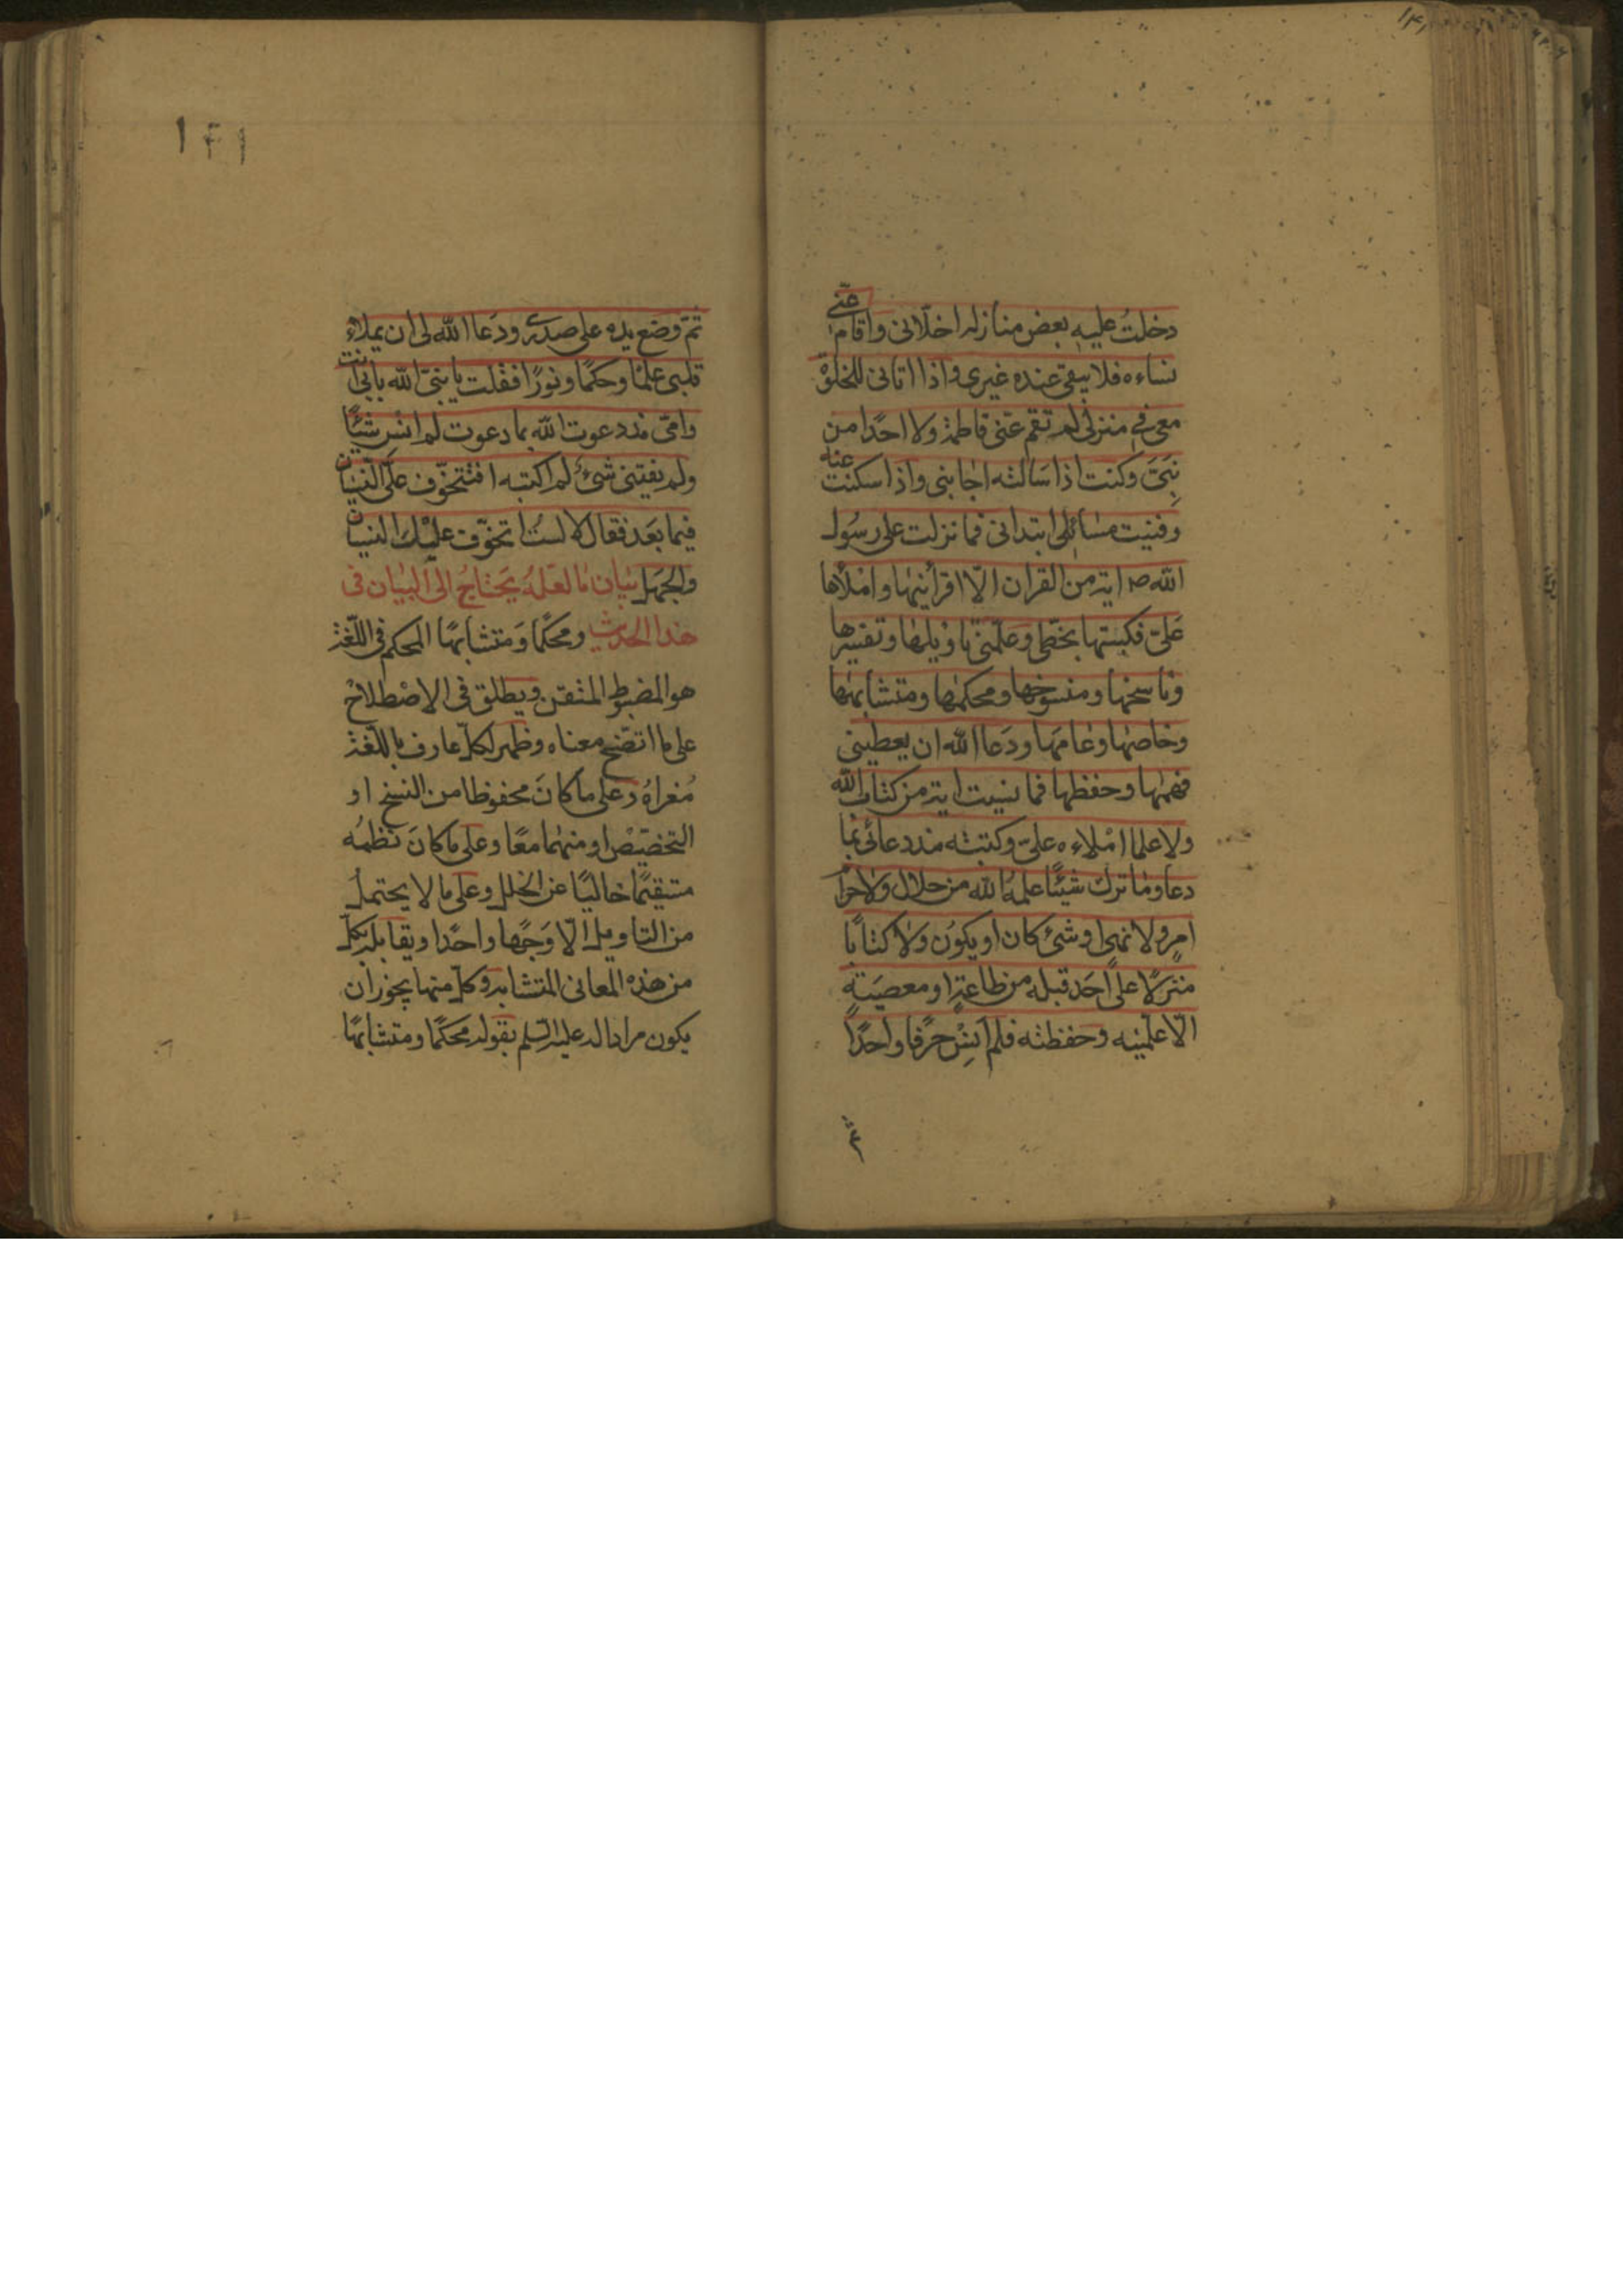 ١٤١
دخلتُ عليه بعض منازله اخلانى واقام عنّى
نساءه فلا يبقى عنده غيرى واذا اتانى للخلوة
معى فى منزلى لم تقم عنى فاطمة ولا احدًا من
بَنِىَّ وكنت اذا سَالته اجابنى واذا سكتت عنه
وفنيت مسائلى ابتدانى فما نزلت على رسُول
الله ص اية من القران الّا اقرأنيها واملأها
عَلىّ فكتبتها بخطى وعلّمنى تاويلها وتفسيرها
وناسخها ومنسوخها ومحكمها ومتشابهها
وخاصها وعامها ودَعا الله ان يعطينى
فهمها وحفظها فما نسيت اية من كتاب الله
ولا علما املاءه علىّ وكتبته منذ دعا لى بما
دعا وما ترك شيئًا علمهُ الله من حلال ولا حرام
امرٍ ولا نهى او شئ كان او يكوُن ولا كتابًا
منزلًا على احَد قبله من طاعةٍ او معصيَةٍ
الّا علّمنيه وحفظته فلم انسِ حرفًا واحدًا
ثمّ
١٤١
ثمّ وضع يده على صدرى ودَعا الله لى ان يملاء
قلبى علمًا وحكمًا ونورًا فقلت يا نبىّ الله بابى انت
وامّى منذ دعوت الله بما دعوت لم انس شيئًا
ولم يفتنى شئ لم اكتبه افتتخوّف علىّ النسيان
فيما بعَد فقال لا لستُ اتخوّف عليْك النسيان
والجهل بيان ما لعَلهُ يَحتاجُ الى البيان فى
هذا الحديث ومحكمًا وَمتشابهًا المحكم فى اللّغة
هو المضبوط المتقن ويطلق فى الاصْطلاحْ
على ما اتضح معناه وظهر لكلّ عارف باللّغة
مُغراهُ وعلى ما كانَ محفوظا من النسخ او
التخصيْص او منهما معًا وعلى ما كانَ نظمُه
مستقيمًا خاليًا عن الخلل وعلى ما لا يحتمل
من التاويل الّا وَجهًا واحدًا ويقابله بكلّ
من هذه المعانى المتشابه وكلّ منها يجوز ان
يكون مرادا له عليه السّلم بقوله محكمًا ومتشابهًا